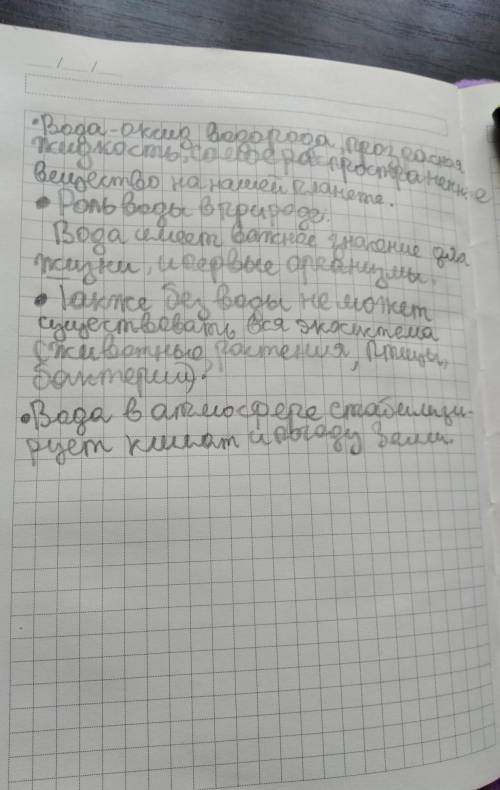 • Вода - оксид водорода, прозрачная
жидкость, самое распространенное
вещество на нашей планете.
• Роль воды в природе.
Вода имеет важное значение для
жизни, и первые организмы.
• Также без воды не может
существовать вся экосистема
(животные, растения, птицы,
бактерии).
• Вода в атмосфере стабилизи-
рует климат и погоду Земли.